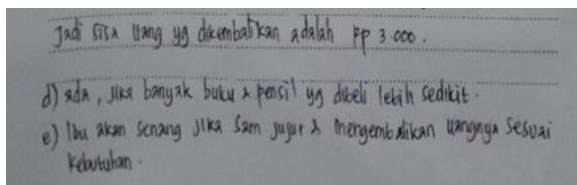 Jadi sisa uang yg dikembalikan adalah Rp 3.000.
d) ada, jika banyak buku & pensil yg dibeli lebih sedikit.
e) Ibu akan senang jika Sam jujur & mengembalikan uangnya sesuai
kebutuhan.